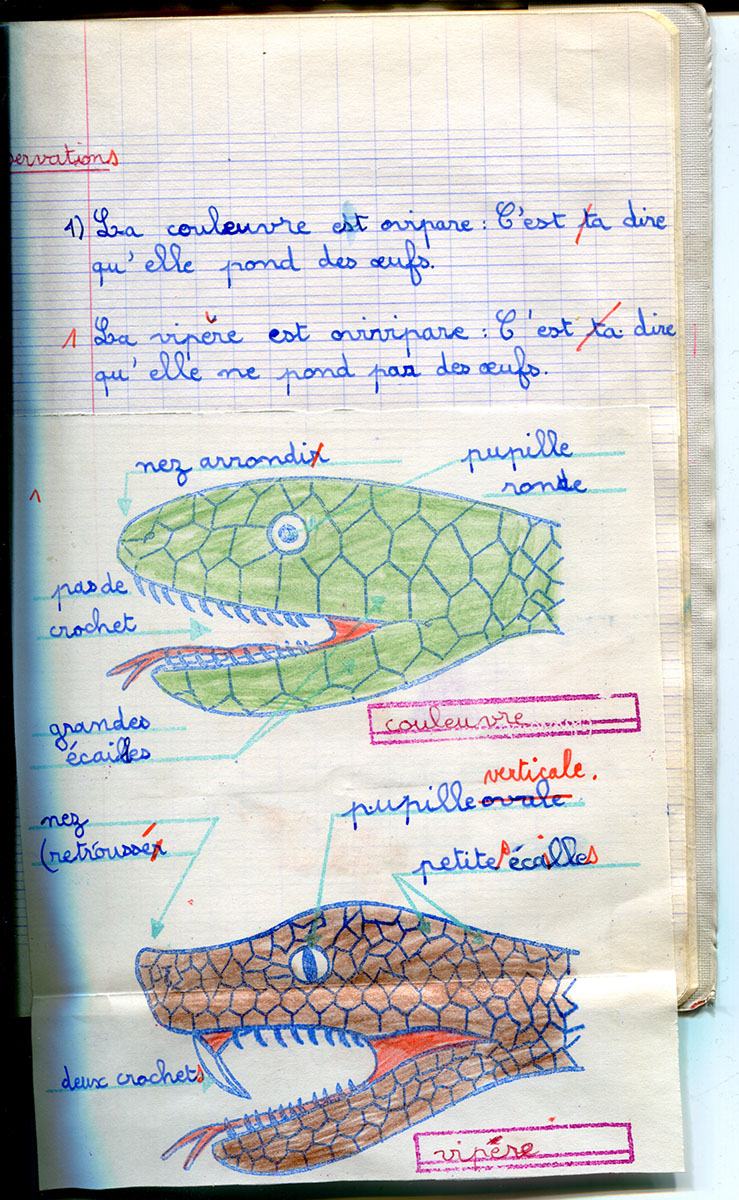 servations
1) La couleuvre est ovipare : C'est ta dire
qu'elle pond des œufs.
1 La vipère est ovivipare : C'est ta dire
qu'elle ne pond pas des œufs.
nez arrondis
pupille
ronde
1
pas de
crochet
grandes
écailles
couleuvre
verticale.
pupille ovale
nez
(retroussér
petites écailles
deux crochets
vipère